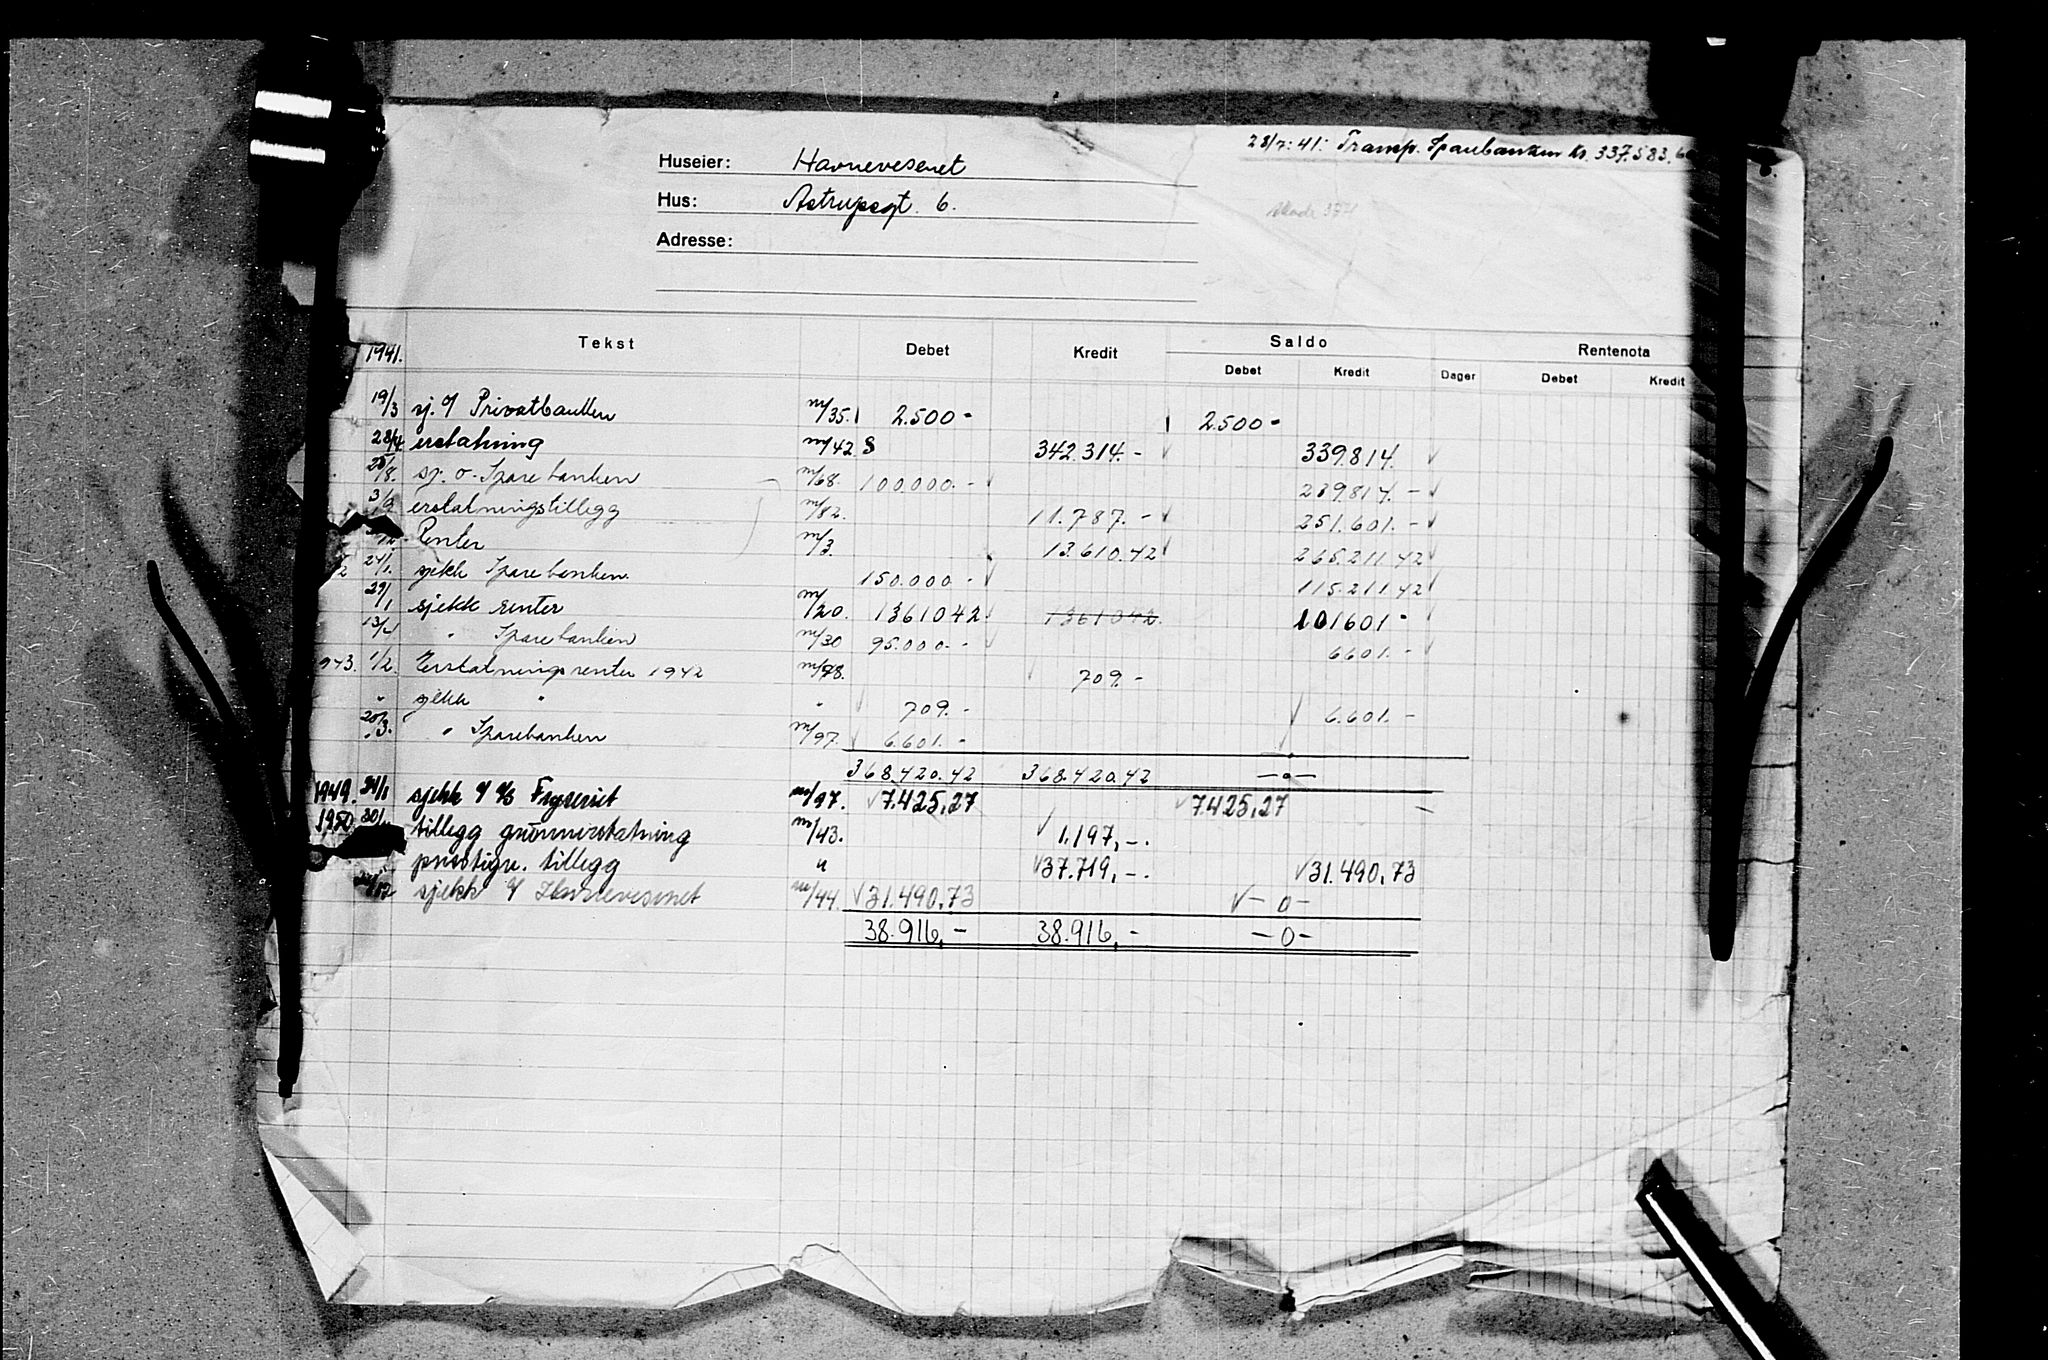 28/7. 41: Transp. Sparebanken kr. 337.583.60
Huseier: Havnevesenet
Hus: Astrupsgt. 6.
Skade 374
Adresse:
1941. Tekst Debet Kredit Saldo Rentenota
Debet Kredit Dager Debet Kredit
19/3 sj. o/ Privatbanken m/35. 2.500- 2.500-
28/4. erstatning m/42 S 342.314.- 339.814.
25/8. sj. o. Sparebanken m/68. 100.000.- 239.814.-
3/9 erstatningstillegg m/82. 11.787.- 251.601.-
Renter m/3. 13.610.42 265.211.42
24/1. sjekk Sparebanken. 150.000.- 115.211.42
29/1 sjekk renter m/20. 1361042. 1361042. 101601-
13/2 " Sparebanken m/30 95.000.- 6601.-
943. 1/2. Erstatningsrenter 1942 m/98. 709.-
" sjekk " " 709.- 6.601.-
20/3. " Sparebanken m/97. 6.601.-
368.420.42 368.420.42 -o-
1949. 24/1 sjekk o/ A/S Fryseriet m/97. 7.425,27 7425,27
1950 30/ tillegg grunnerstatning m/43. 1.197,-.
prisstign. tillegg " 37.719,-. 31.490,73
sjekk o/ Havnevesenet m/44. 31.490,73 -0-
38.916,- 38.916,- -0-